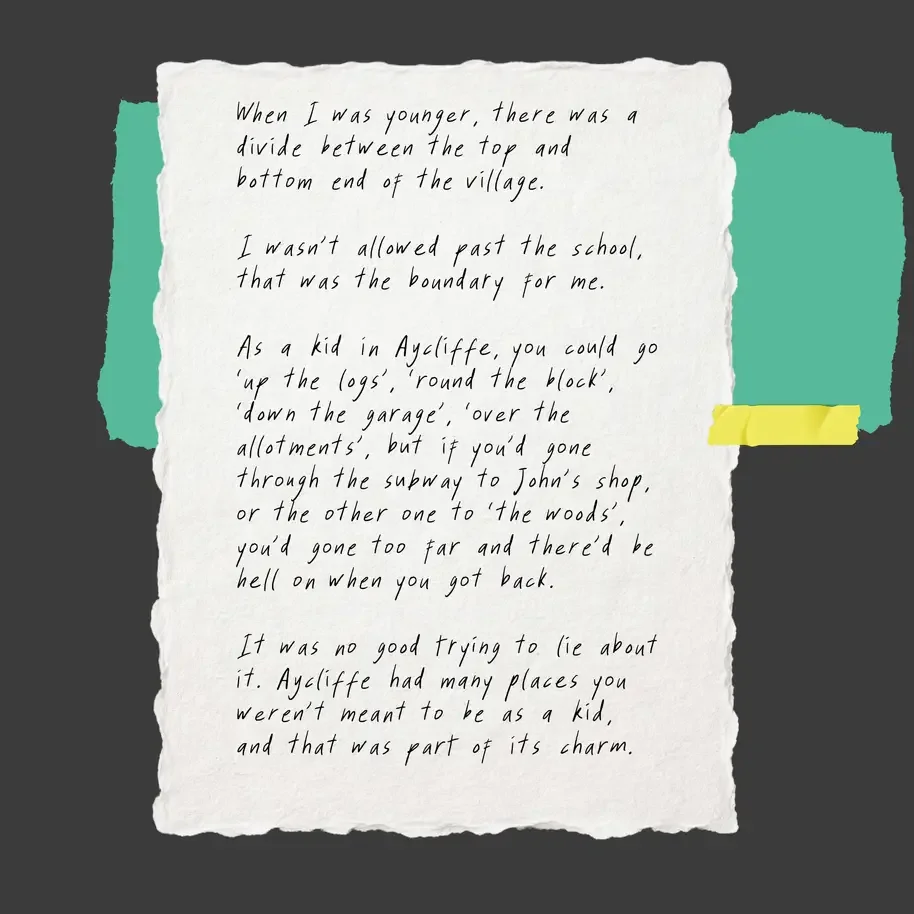 When I was younger, there was a
divide between the top and
bottom end of the village.
I wasn't allowed past the school,
that was the boundary for me.
As a kid in Aycliffe, you could go
'up the logs', 'round the block',
'down the garage', 'over the
allotments', but if you'd gone
through the subway to John's shop,
or the other one to 'the woods',
you'd gone too far and there'd be
hell on when you got back.
It was no good trying to lie about
it. Aycliffe had many places you
weren't meant to be as a kid,
and that was part of its charm.